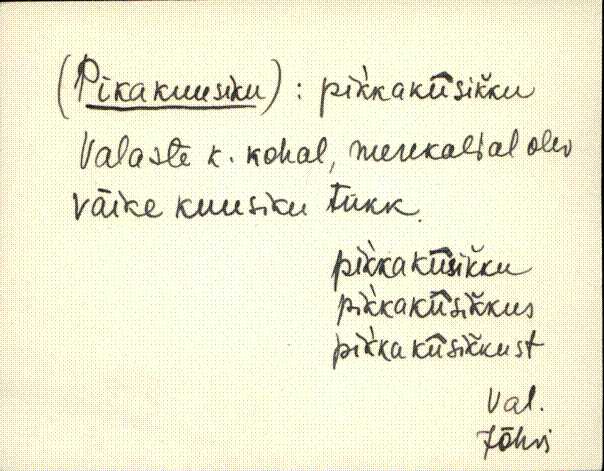 (Pikakuusiku) : pìkkakū̂sik̆ku
Valaste k. kohal, merekaldal olev
väike kuusiku tükk.
pìkkakū̂sik̆ku
pìkkakū̂sik̆kus
pìkkakū̂sik̆kust
Val.
Jõhvi